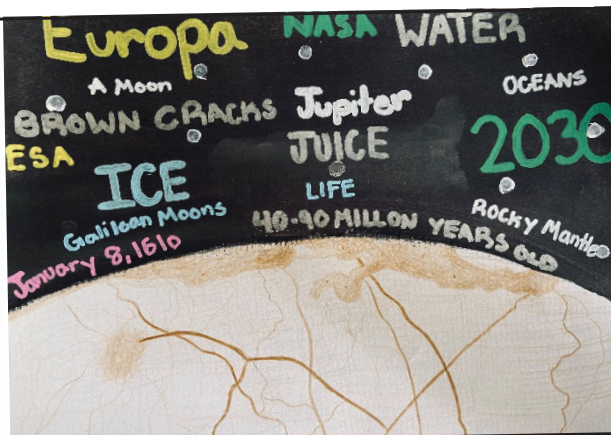 Europa
NASA
WATER
A Moon
OCEANS
BROWN CRACKS
Jupiter
2030
ESA
JUICE
ICE
LIFE
Galilean Moons
40-90 MILLON YEARS OLD
Rocky Mantle
January 8, 1610